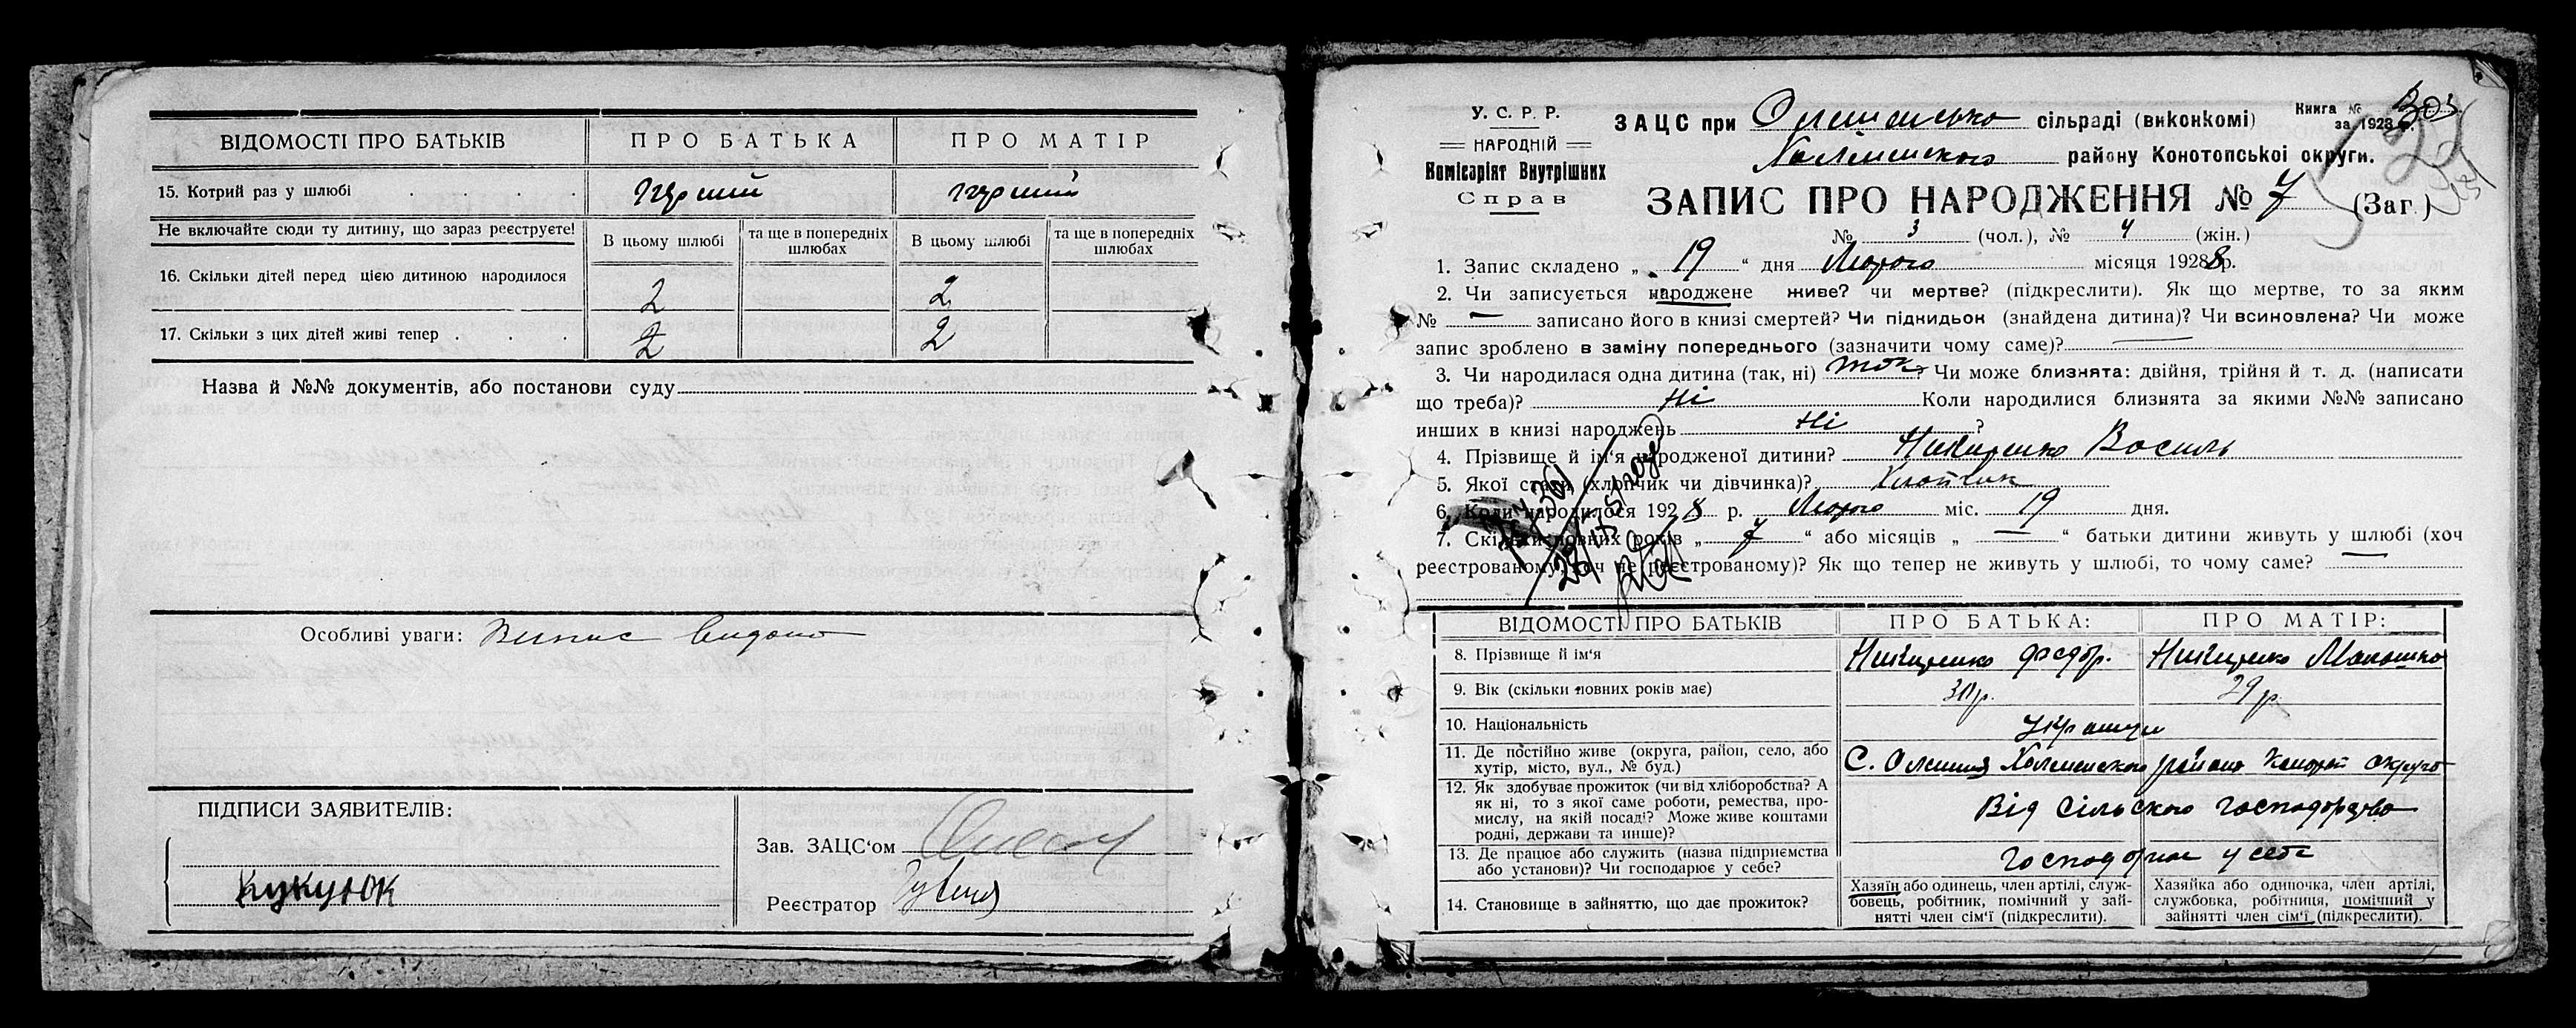 ВІДОМОСТІ ПРО БАТЬКІВ ПРО БАТЬКА ПРО МАТІР
15. Котрий раз у шлюбі . . . . перший перший
Не включайте сюди ту дитину, що зараз реєструєте! В цьому шлюбі та ще в попередніх шлюбах В цьому шлюбі та ще в попередніх шлюбах
16. Скільки дітей перед цією дитиною народилося 2 2
17. Скільки з цих дітей живі тепер . . . 2 2
Назва й №№ документів, або постанови суду
Особливі уваги: Випис видано
ПІДПИСИ ЗАЯВИТЕЛІВ:
Зав. ЗАЦС'ом
Реєстратор
У. С. Р. Р.
НАРОДНІЙ
Комісаріят Внутрішних
Справ
ЗАЦС при сільраді (виконкомі)
району Конотопської округи.
Книга №
за 1928 р.
ЗАПИС ПРО НАРОДЖЕННЯ № 7 (Заг.)
№ 3 (чол.), № 4 (жін.)
1. Запис складено „ 19 “ дня Лютого місяця 1928 р.
2. Чи записується народжене живе? чи мертве? (підкреслити). Як що мертве, то за яким
№ — записано його в книзі смертей? Чи підкидьок (знайдена дитина)? Чи всиновлена? Чи може
запис зроблено в заміну попереднього (зазначити чому саме)? —
3. Чи народилася одна дитина (так, ні) так? Чи може близнята: двійня, трійня й т. д. (написати
що треба)? Ні Коли народилися близнята за якими №№ записано
инших в книзі народжень Ні ?
4. Прізвище й ім'я народженої дитини? Никитенко Василь
5. Якої статі (хлопчик чи дівчинка)? Хлопчик
6. Коли народилося 1928 р. Лютого міс. 19 дня.
7. Скільки повних років „ 7 “ або місяців „ — “ батьки дитини живуть у шлюбі (хоч
реєстрованому, хоч не реєстрованому)? Як що тепер не живуть у шлюбі, то чому саме? —
ВІДОМОСТІ ПРО БАТЬКІВ ПРО БАТЬКА: ПРО МАТІР:
8. Прізвище й ім'я Никитенко Федор. Никитенко
9. Вік (скільки повних років має) 29 р.
10. Національність
11. Де постійно живе (округа, район, село, або
хутір, місто, вул., № буд.)
12. Як здобуває прожиток (чи від хліборобства? А
як ні, то з якої саме роботи, ремества, про-
мислу, на якій посаді? Може живе коштами
родні, держави та инше)? Від сільского господарства
13. Де працює або служить (назва підприємства
або установи)? Чи господарює у себе? у себе
14. Становище в зайняттю, що дає прожиток? Хазяїн або одинець, член артілі, служ-
бовець, робітник, помічний у зай-
нятті член сім'ї (підкреслити).
Хазяйка або одиночка, член артілі,
службовка, робітниця, помічний у
зайнятті член сім'ї (підкреслити).